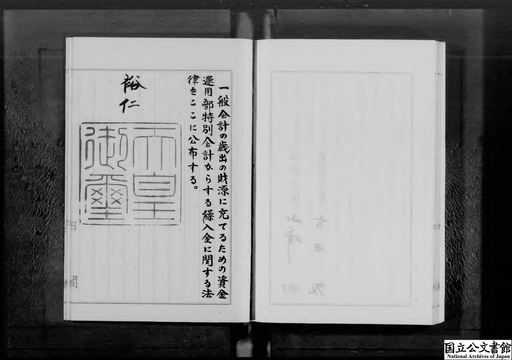 一般会計の歳出の財源に充てるための資金
運用部特別会計からする繰入金に関する法
律をここに公布する。
裕仁
天皇
御璽
国立公文書館
National Archives of Japan